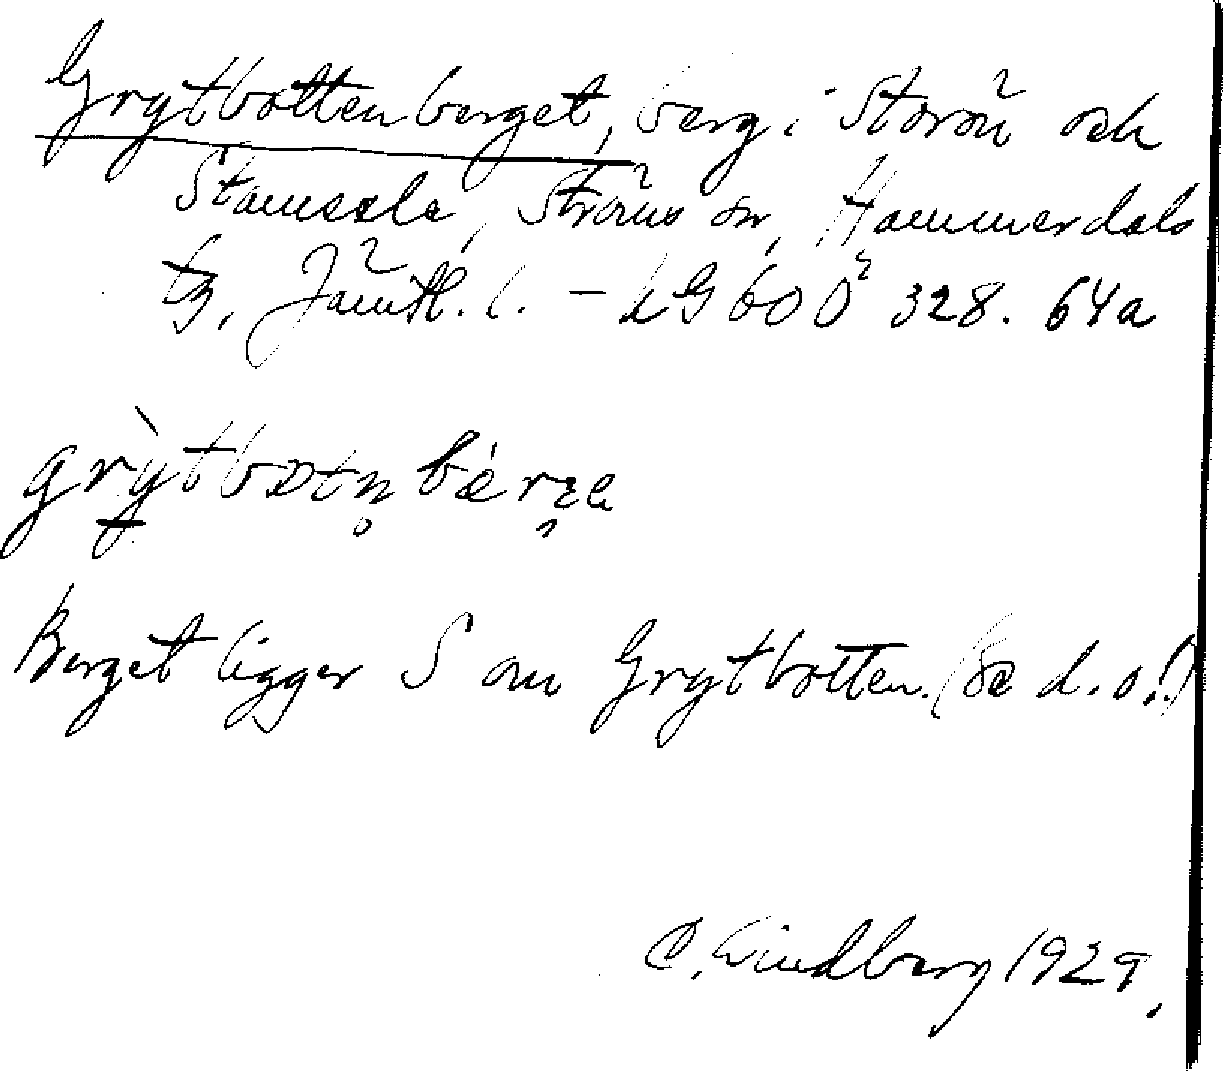 Grytbottenberget, berg i Storån och
Stamsele, Ströms sn, Hammerdals
tg, Jämtl. l. – LG 600 328. 64a
grỳtbɒtn̥bèrɜe
Berget ligger S om Grytbotten. (Se d. o.!)
C. Lindberg 1929.